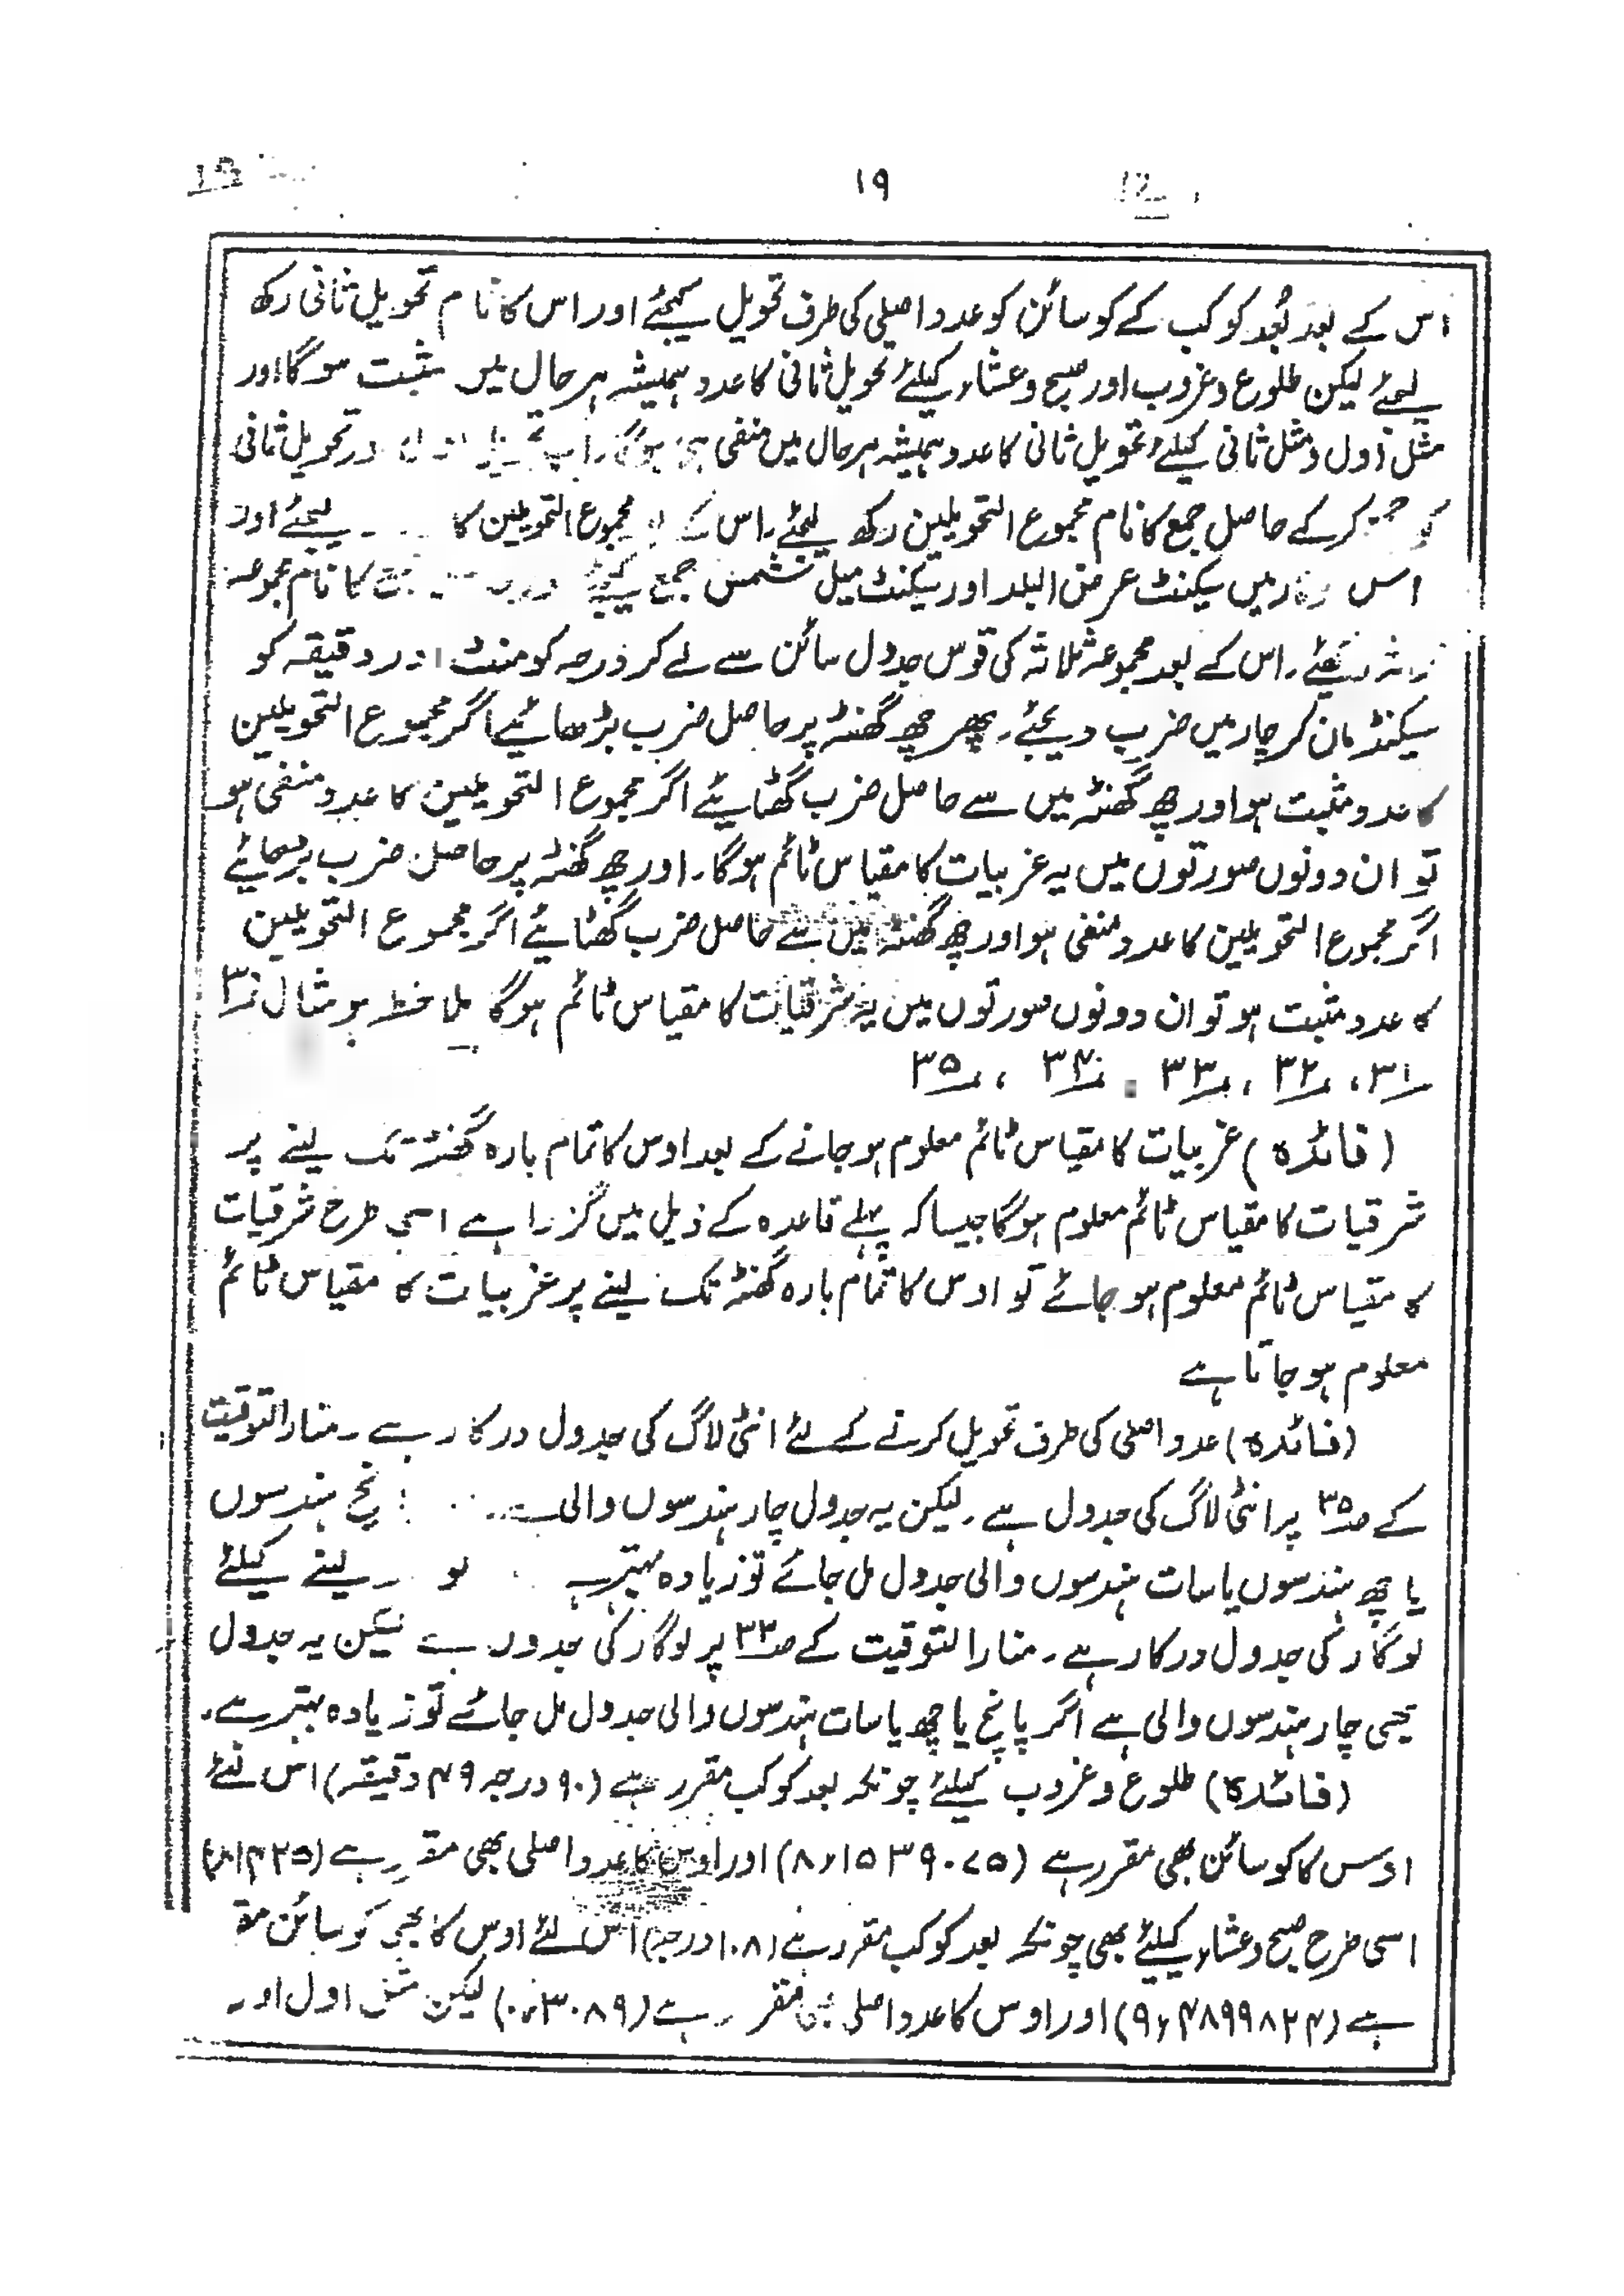 ۱۹
اس کے بعد بُعد کوکب کے کو سائن کو عدد اصلی کی طرف تحویل کیجئے اور اس کا نام تحویل ثانی رکھ
لیجئے لیکن طلوع و غروب اور صبح و عشاء کیلئے تحویل ثانی کا عدد ہمیشہ ہر حال میں مثبت ہوگا اور
مثل اول و مثل ثانی کیلئے تحویل ثانی کا عدد ہمیشہ ہر حال میں منفی ہی ہوگا۔ اب تحویل ثانی
کو جمع کر کے حاصل جمع کا نام مجموع التحویلین رکھ لیجئے۔ اس کے مجموع التحویلین کا لیجئے اور
اس میں سیکنٹ عرض البلد اور سیکنٹ میل شمس جمع کیجئے کا نام مجموعہ
اس کے بعد مجموعہ ثلاثہ کی قوس جدول سائن سے لے کر درجہ کو منٹ اور دقیقہ کو
سیکنڈ مان کر چار میں ضرب دیجئے۔ پھر چھ گھنٹہ پر حاصل ضرب بڑھائیے اگر مجموع التحویلین
کا عدد مثبت ہو اور چھ گھنٹہ میں سے حاصل ضرب گھٹایئے اگر مجموع التحویلین کا عدد منفی ہو
تو ان دونوں صورتوں میں یہ غربیات کا مقیاس ٹائم ہوگا۔ اور چھ گھنٹہ پر حاصل ضرب بڑھائیے
اگر مجموع التحویلین کا عدد منفی ہو اور چھ گھنٹہ میں سے حاصل ضرب گھٹایئے اگر مجموع التحویلین
کا عدد مثبت ہو تو ان دونوں صورتوں میں یہ شرقیات کا مقیاس ٹائم ہوگا ملاحظہ ہو مثال
۳۱، ۳۲، ۳۳، ۳۴، ۳۵
(فائدہ) غربیات کا مقیاس ٹائم معلوم ہو جانے کے بعد اوس کا تمام بارہ گھنٹہ تک لینے پر
شرقیات کا مقیاس ٹائم معلوم ہوگا جیسا کہ پہلے قاعدہ کے ذیل میں گزرا ہے اسی طرح شرقیات
کا مقیاس ٹائم معلوم ہو جائے تو اوس کا تمام بارہ گھنٹہ تک لینے پر غربیات کا مقیاس ٹائم
معلوم ہو جاتا ہے
(فائدہ) عدد اصلی کی طرف تحویل کرنے کے لئے انٹی لاگ کی جدول درکار ہے۔ منار التوقیت
کے صـ ۳۵ پر انٹی لاگ کی جدول ہے۔ لیکن یہ جدول چار ہندسوں والی ہندسوں
یا چھ ہندسوں یا سات ہندسوں والی جدول مل جائے تو زیادہ بہتر ہے لو لینے کیلئے
لوگار کی جدول درکار ہے۔ منار التوقیت کے صـ ۳۳ پر لوگار کی جدول ہے لیکن یہ جدول
بھی چار ہندسوں والی ہے اگر پانچ یا چھ یا سات ہندسوں والی جدول مل جائے تو زیادہ بہتر ہے۔
(فائدہ) طلوع و غروب کیلئے چونکہ بعد کوکب مقرر ہے (۹۰ درجہ ۴۹ دقیقہ) اس لئے
اوس کا کو سائن بھی مقرر ہے (۸٫۱۵۳۹۰۷۵) اور اوس کا عدد اصلی بھی مقرر ہے
اسی طرح صبح و عشاء کیلئے بھی چونکہ بعد کوکب مقرر ہے (۱۰۸ درجہ) اس لئے اوس کا بھی کو سائن مقـ
ہے (۹٫۴۸۹۹۸۲۴) اور اوس کا عدد اصلی بھی مقرر ہے (۰٫۳۰۸۹) لیکن مثل اول اور